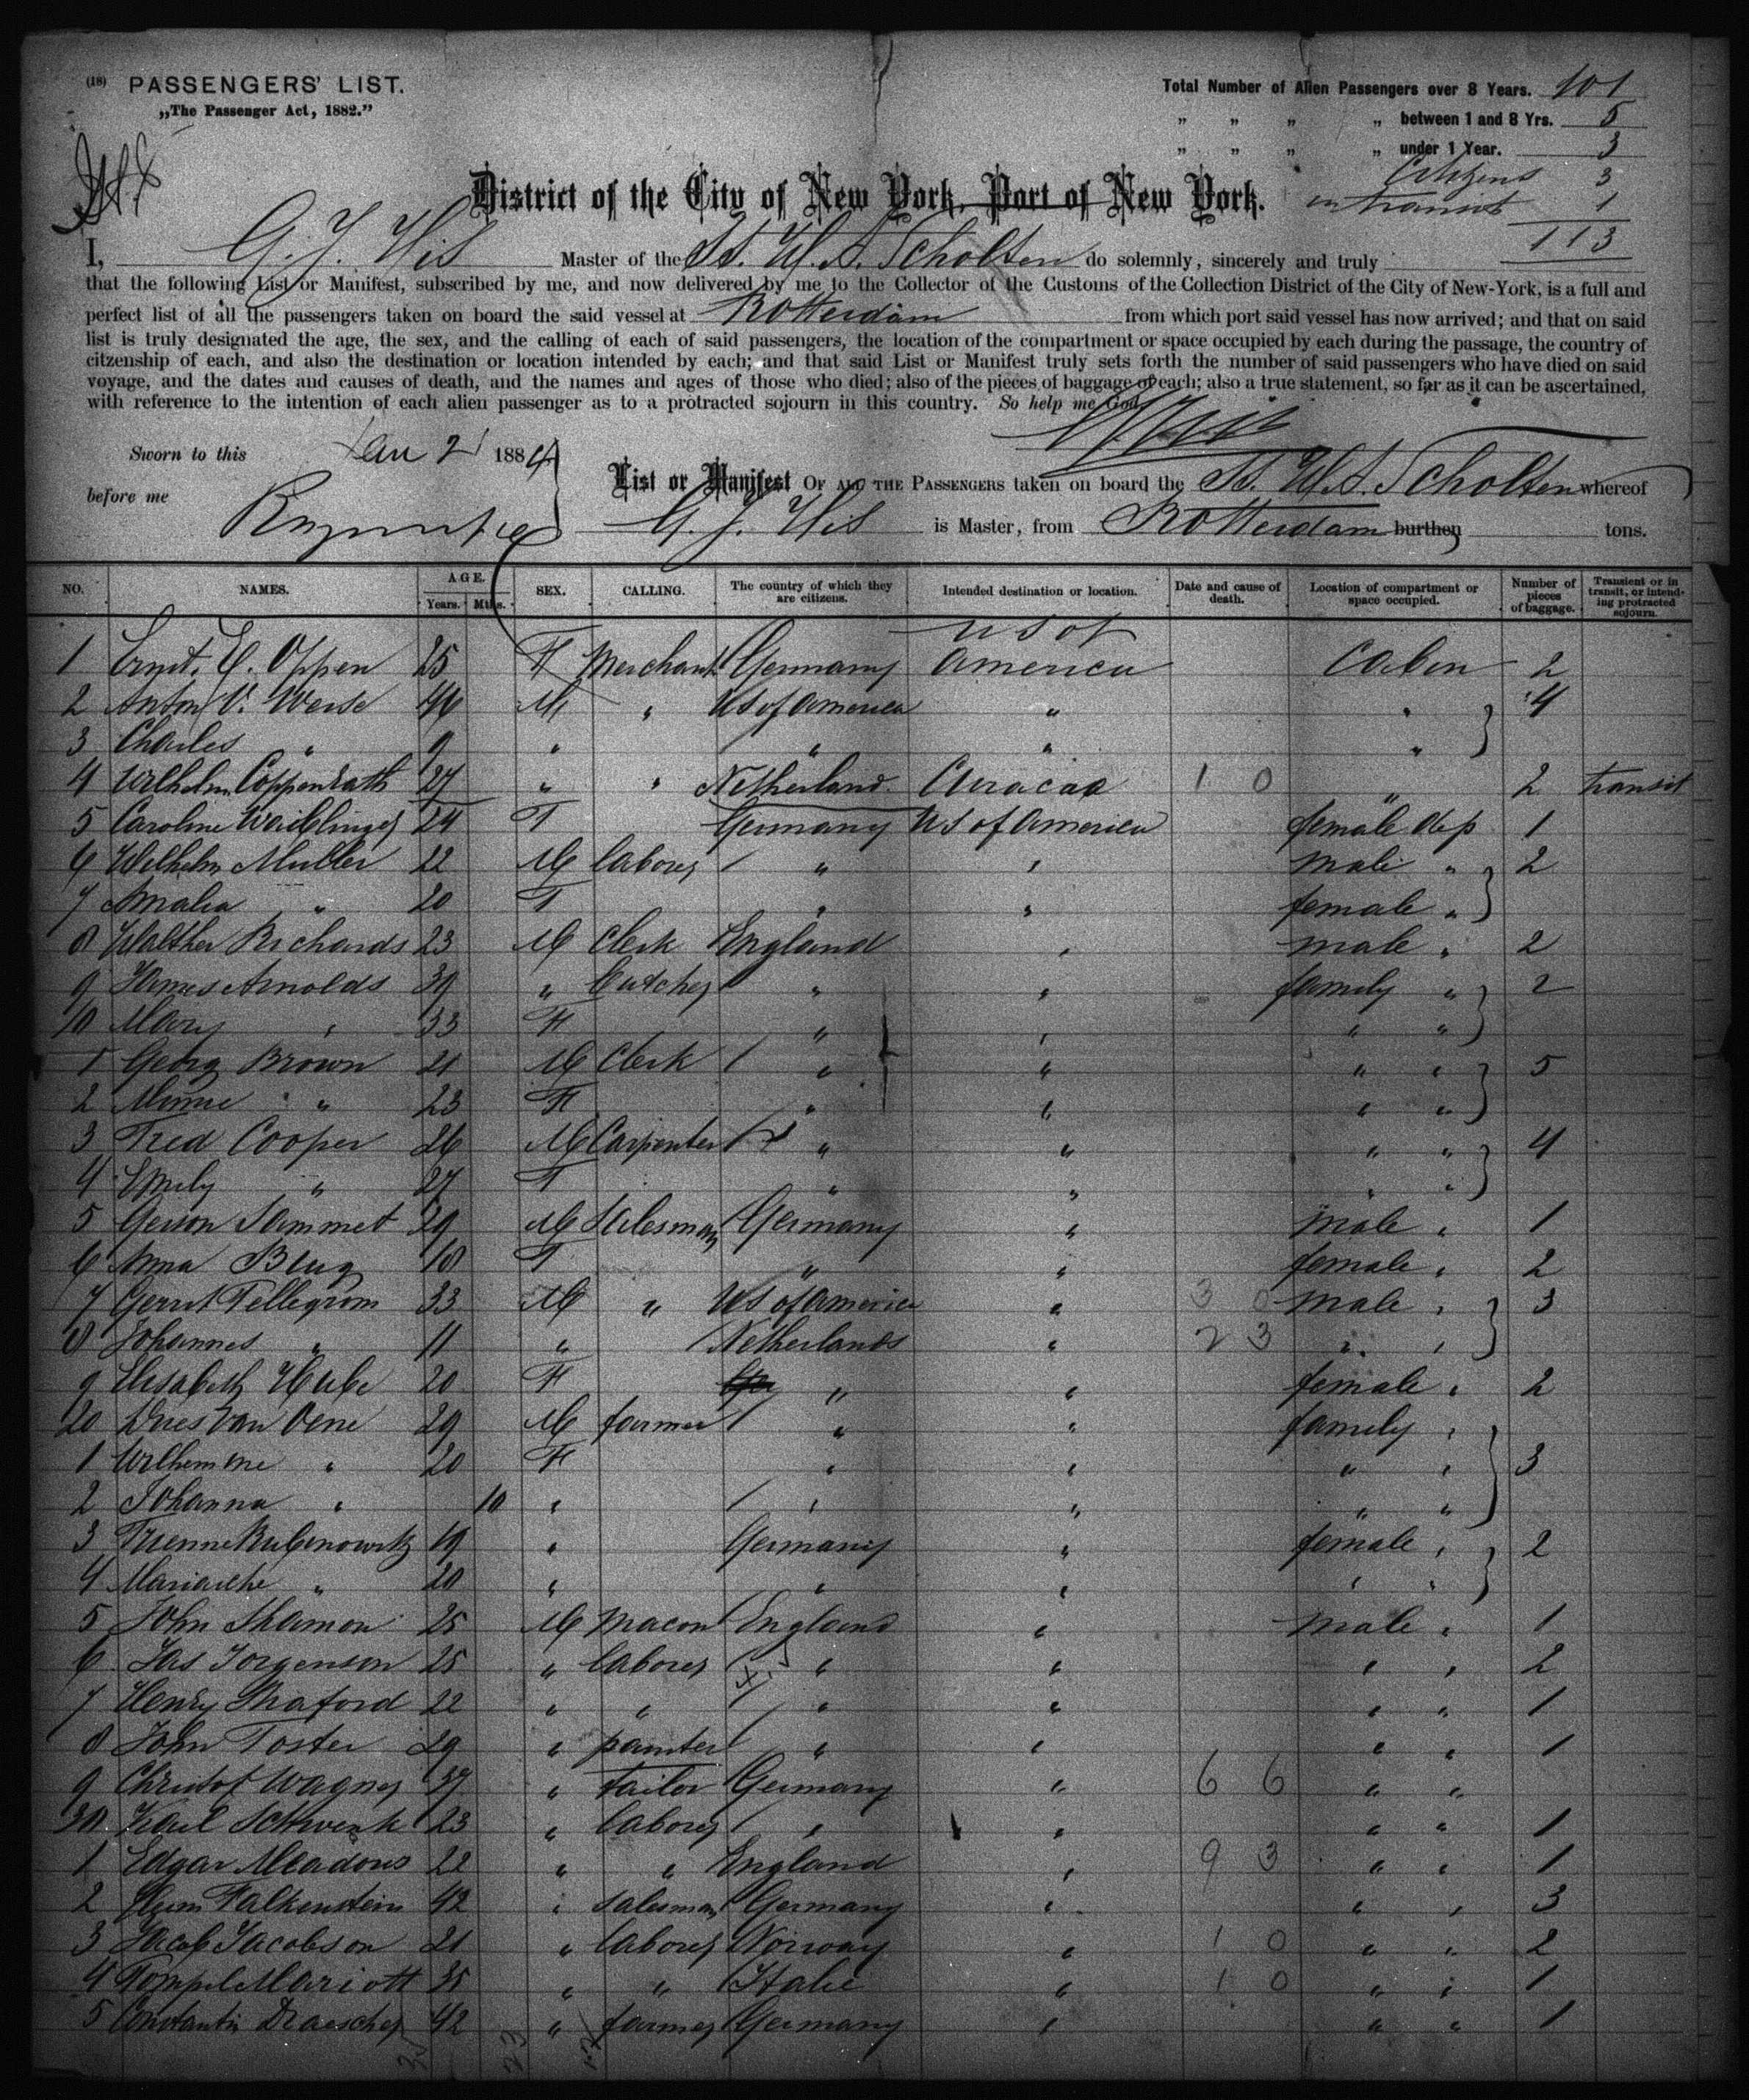 (18) PASSENGERS' LIST.
„The Passenger Act, 1882.”
Total Number of Alien Passengers over 8 Years. 101
„ „ „ „ between 1 and 8 Yrs. 5
„ „ „ „ under 1 Year. 3
Citizens 3
in transit 1
113
District of the City of New York, Port of New York.
I, G. J. Vis Master of the St. W. A. Scholten do solemnly, sincerely and truly
that the following List or Manifest, subscribed by me, and now delivered by me to the Collector of the Customs of the Collection District of the City of New-York, is a full and
perfect list of all the passengers taken on board the said vessel at Rotterdam from which port said vessel has now arrived; and that on said
list is truly designated the age, the sex, and the calling of each of said passengers, the location of the compartment or space occupied by each during the passage, the country of
citzenship of each, and also the destination or location intended by each; and that said List or Manifest truly sets forth the number of said passengers who have died on said
voyage, and the dates and causes of death, and the names and ages of those who died; also of the pieces of baggage of each; also a true statement, so far as it can be ascertained,
with reference to the intention of each alien passenger as to a protracted sojourn in this country. So help me God.
Sworn to this Jan 2 1884
before me
List or Manifest OF ALL THE PASSENGERS taken on board the St. W. A. Scholten whereof
G. J. Vis is Master, from Rotterdam burthen tons.
NO. NAMES. AGE. Years. Mths. SEX. CALLING. The country of which they are citizens. Intended destination or location. Date and cause of death. Location of compartment or space occupied. Number of pieces of baggage. Transient or in transit, or intending protracted sojourn.
1 Ernst. E. Oppen 25 F Merchant Germany US of America Cabin 2
2 Anton V. Weise 46 M " US of America " " 4
3 Charles " 9 " " " "
4 Wilhelm Coppenrath 27 " " Netherland Curacao 1 0 " 2 transit
5 Caroline Waiblinger 24 F Germany US of America female dep 1
6 Wilhelm Muller 22 M laborer " " male " 2
7 Amalia " 20 F " " female "
8 Walther Richards 23 M Clerk England " male " 2
9 James Arnolds 39 " butcher " " family " 2
10 Mary " 33 F " " " "
1 Georg Brown 21 M Clerk " " " " 5
2 Minnie " 23 F " " " "
3 Fred Cooper 26 M Carpenter " " " " 4
4 Emily " 27 F " " " "
5 Gerson Sammet 29 M Salesman Germany " male " 1
6 Anna Blug 18 F " " female " 2
7 Gerrit Tellegrom 33 M " US of America " 3 0 male " 3
8 Johannes " 11 " Netherlands " 2 3 " "
9 Elisabeth Hube 20 F " " female " 2
20 Dries van Oene 29 M farmer " " family "
1 Wilhemine " 20 F " " " " 3
2 Johanna " 10 " " " " "
3 Rubenowitz 19 " Germany " female " 2
4 " 20 " " " " "
5 John Shamon 25 M Macon England " male " 1
6 Jas Jorgenson 25 " laborer " " " " 2
7 Henry 22 " " " " " " 1
8 John Foster 29 " painter " " " " 1
9 Christof Wagner 37 " tailor Germany " 6 6 " "
30 Karl Schwenk 23 " laborer " " " " 1
1 Edgar Meadows 22 " " England " 9 3 " " 1
2 Falkenstein 42 " salesman Germany " " " 3
3 Jacob Jacobson 21 " laborer Norway " 1 0 " " 2
4 Mariott 35 " " Italie " 1 0 " " 1
5 Constantin Draescher 42 " farmer Germany " " " 1